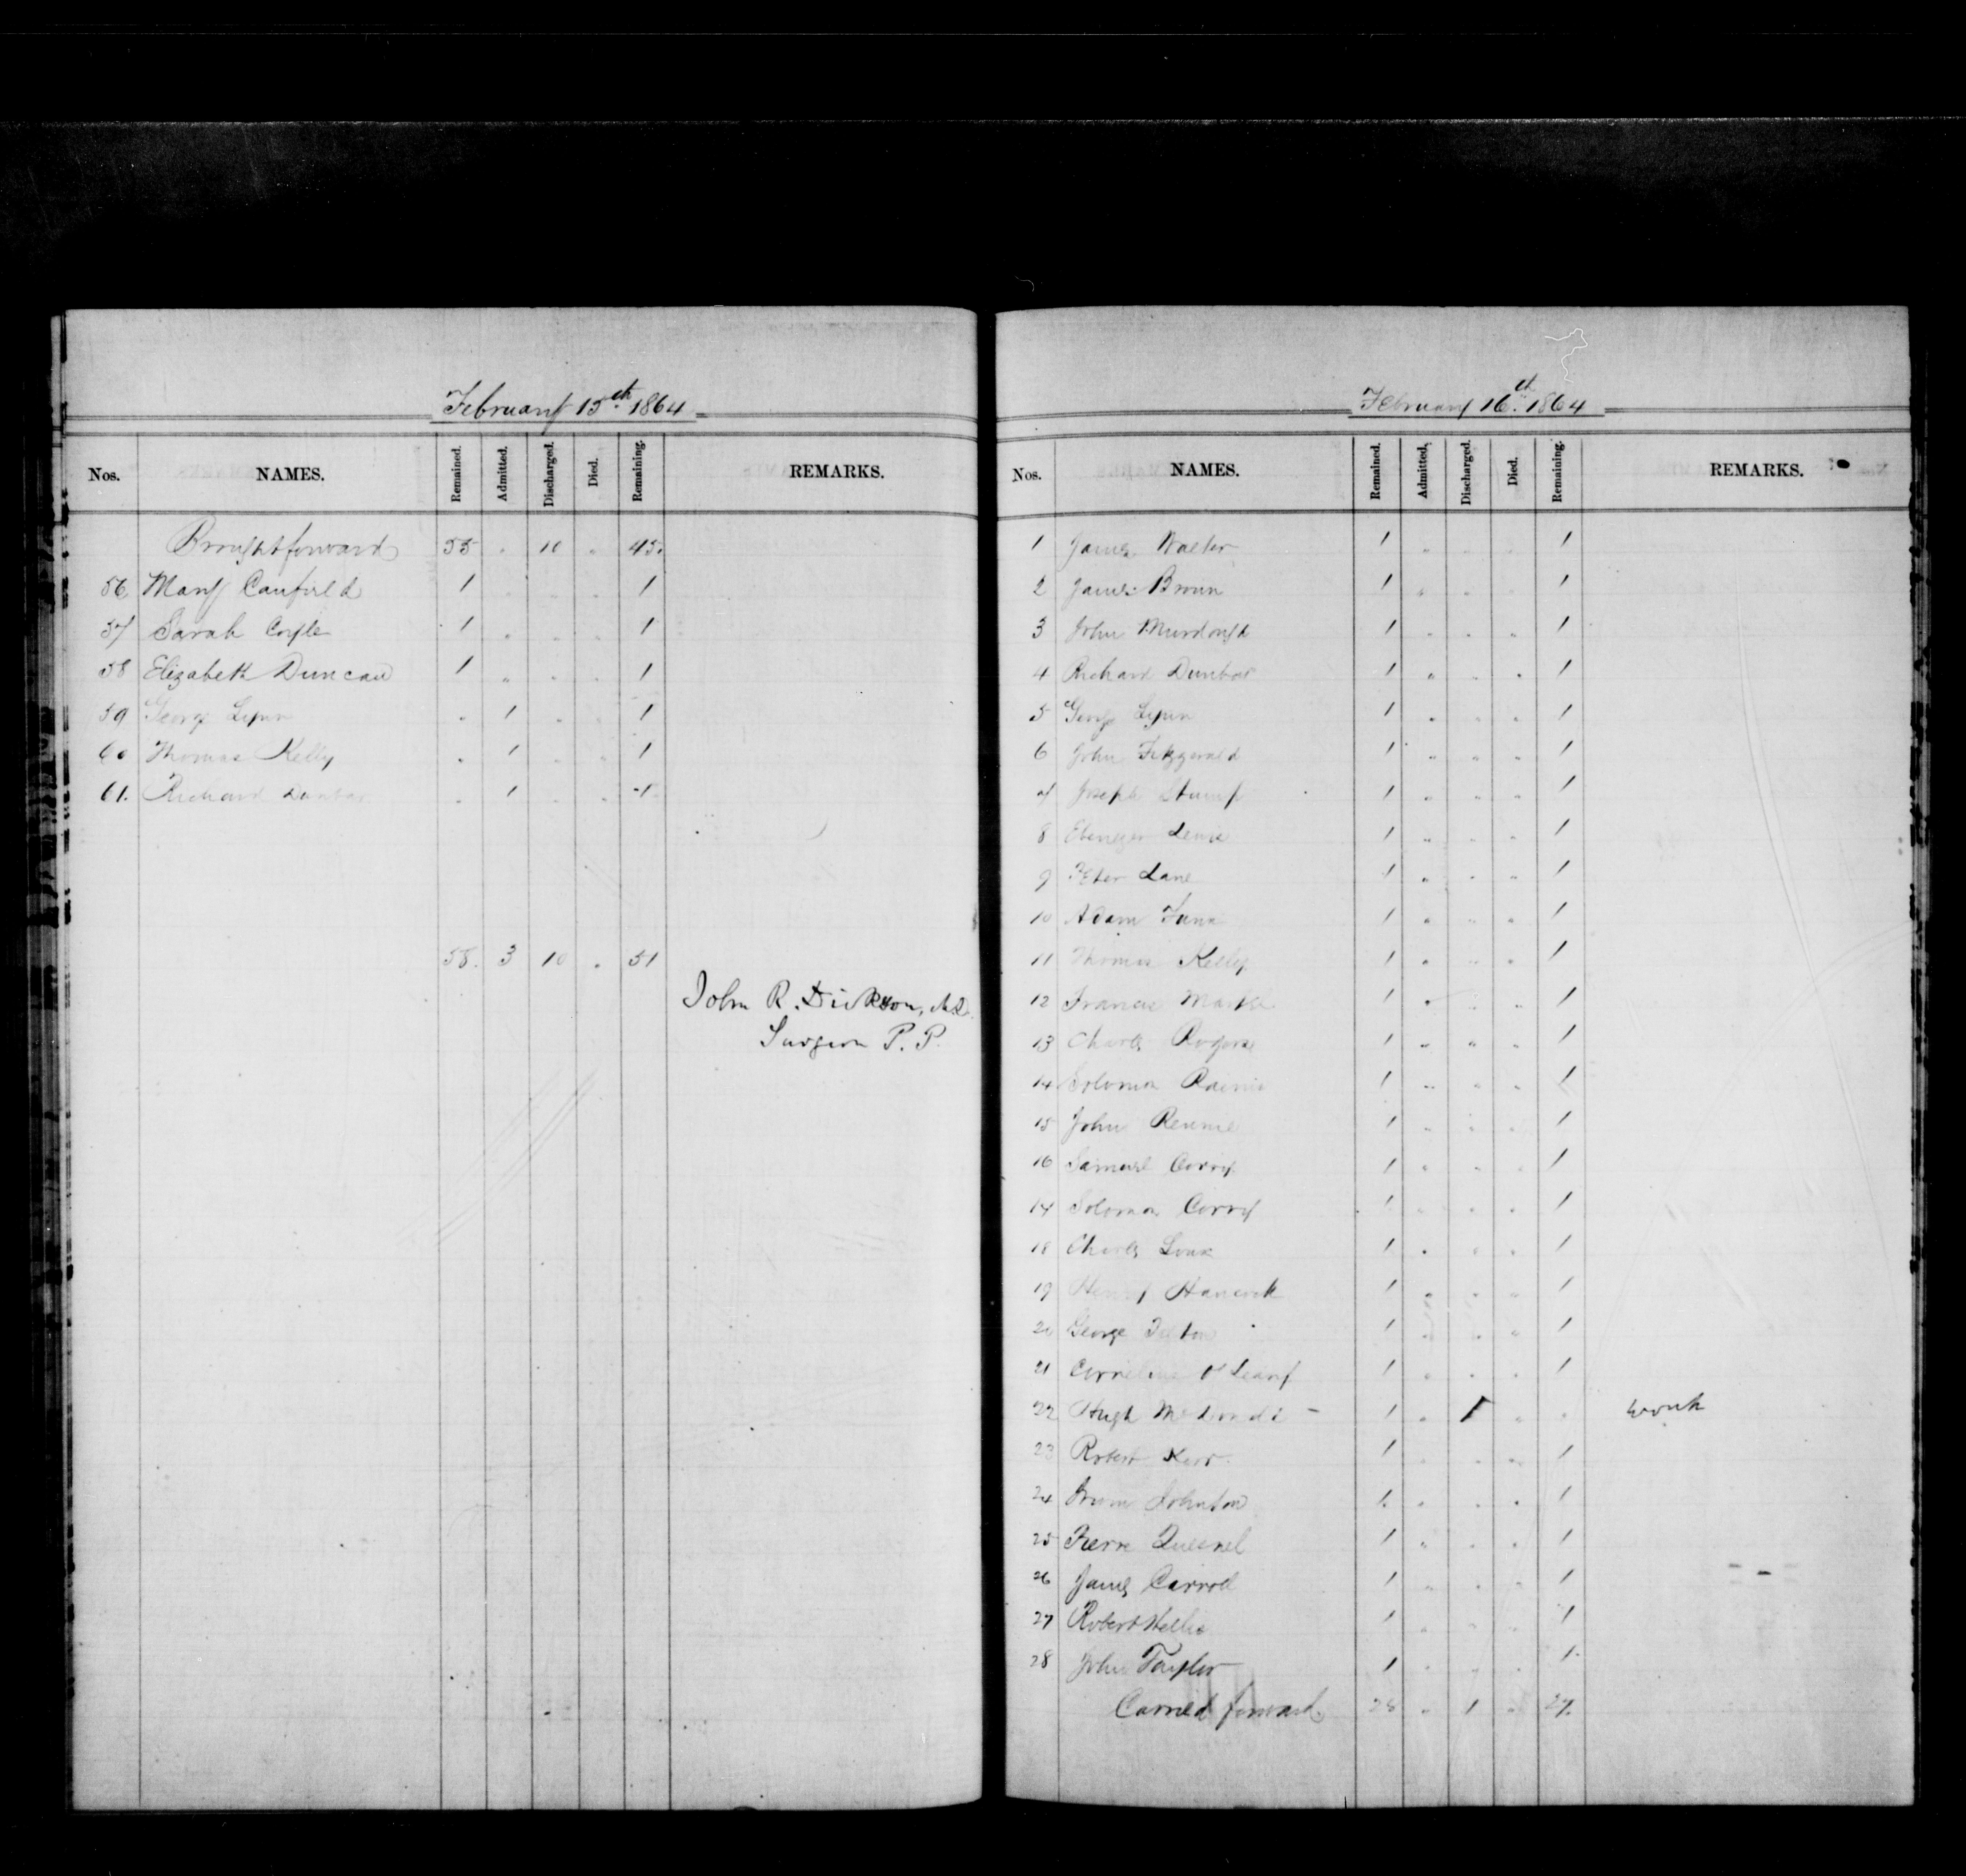 February 15th 1864
Nos. NAMES. Remained. Admitted. Discharged. Died. Remaining. REMARKS.
Brought forward 55 " 10 " 45.
56 Mary Canfield 1 " " " 1
57 Sarah Coyle 1 " " " 1
58 Elizabeth Duncan 1 " " " 1
59 George Lynn " 1 " " 1
60 Thomas Kelly " 1 " " 1
61. Richard Dunbar " 1 " " 1
58. 3 10 " 51
John R. Dickson, M.D.
Surgeon P. P.
February 16th 1864
Nos. NAMES. Remained. Admitted. Discharged. Died. Remaining. REMARKS.
1 James Walter 1 " " " 1
2 James Brown 1 " " " 1
3 John Murdough 1 " " " 1
4 Richard Dunbar 1 " " " 1
5 George Lynn 1 " " " 1
6 John Fitzgerald 1 " " " 1
7 Joseph Stump 1 " " " 1
8 Ebenezer Lewis 1 " " " 1
9 Peter Lane 1 " " " 1
10 Adam 1 " " " 1
11 Thomas Kelly 1 " " " 1
12 Francis 1 " " " 1
13 Charles Rogers 1 " " " 1
14 Solomon 1 " " " 1
15 John Rennie 1 " " " 1
16 Samuel Corry 1 " " " 1
17 Solomon Corry 1 " " " 1
18 Charles 1 " " " 1
19 Henry Hancock 1 " " " 1
20 George 1 " " " 1
21 Cornelius O'Leary 1 " " " 1
22 Hugh McDonald - 1 " 1 " " work
23 Robert Kerr 1 " " " 1
24 Johnston 1. " " " 1
25 Pierre Quesnel 1 " " " 1
26 James Carroll 1 " " " 1
27 Robert Wellis 1 " " " 1
28 John Taylor 1 " " " 1
Carried forward 28 " 1 " 27.